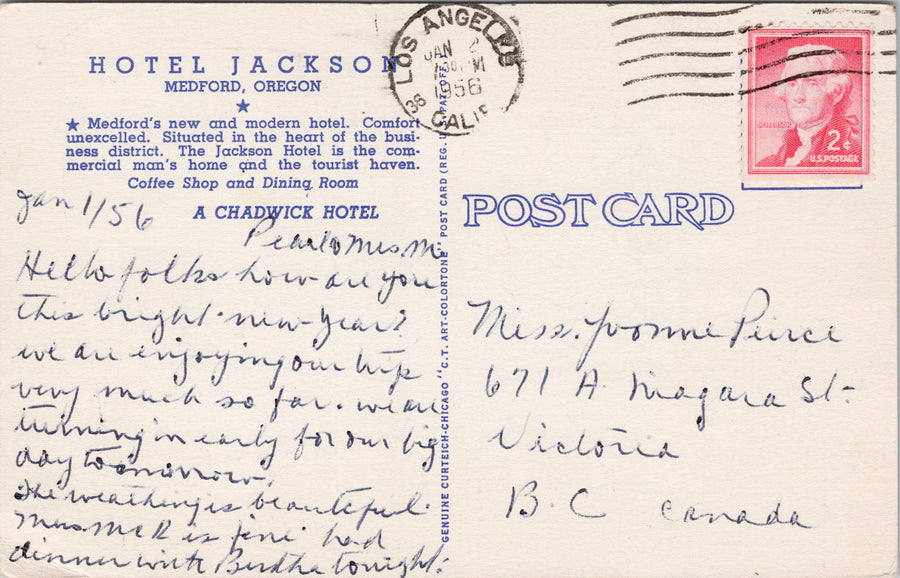 HOTEL JACKSON
MEDFORD, OREGON
★
★ Medford's new and modern hotel. Comfort
unexcelled. Situated in the heart of the busi-
ness district. The Jackson Hotel is the com-
mercial man's home and the tourist haven.
Coffee Shop and Dining Room
A CHADWICK HOTEL
Jan 1/56
Pearl & Mrs. Mc
Hello folks how are you
this bright new year?
we are enjoying our trip
very much so far. we are
turning in early for our big
day tomorrow.
The weathering is beautiful.
Mrs McR is fine had
dinner with Bertha tonight.
GENUINE CURTEICH-CHICAGO "C.T. ART-COLORTONE" POST CARD (REG. U.S. PAT. OFF.)
LOS ANGELES
JAN 2
730 PM
1956
36 CALIF
JEFFERSON
2¢
U.S. POSTAGE
POST CARD
Miss. Yvonne Peirce
671 A Niagara St-
Victoria
B.C Canada